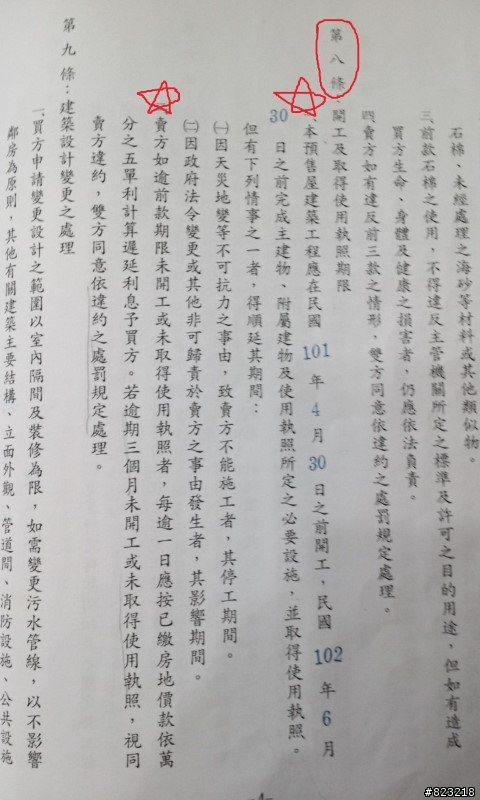 石棉、未經處理之海砂等材料或其他類似物。
三、前款石棉之使用，不得違反主管機關所定之標準及許可之目的用途，但如有造成
買方生命、身體及健康之損害者，仍應依法負責。
四、賣方如有違反前三款之情形，雙方同意依違約之處罰規定處理。
第八條：開工及取得使用執照期限
、本預售屋建築工程應在民國 101 年 4 月 30 日之前開工，民國 102 年 6 月
30 日之前完成主建物、附屬建物及使用執照所定之必要設施，並取得使用執照。
但有下列情事之一者，得順延其期間：
㈠因天災地變等不可抗力之事由，致賣方不能施工者，其停工期間。
㈡因政府法令變更或其他非可歸責於賣方之事由發生者，其影響期間。
賣方如逾前款期限未開工或未取得使用執照者，每逾一日應按已繳房地價款依萬
分之五單利計算遲延利息予買方。若逾期三個月未開工或未取得使用執照，視同
賣方違約，雙方同意依違約之處罰規定處理。
第九條：建築設計變更之處理
一、買方申請變更設計之範圍以室內隔間及裝修為限，如需變更污水管線，以不影響
鄰房為原則，其他有關建築主要結構、立面外觀、管道間、消防設施、公共設施
-4-
#823218